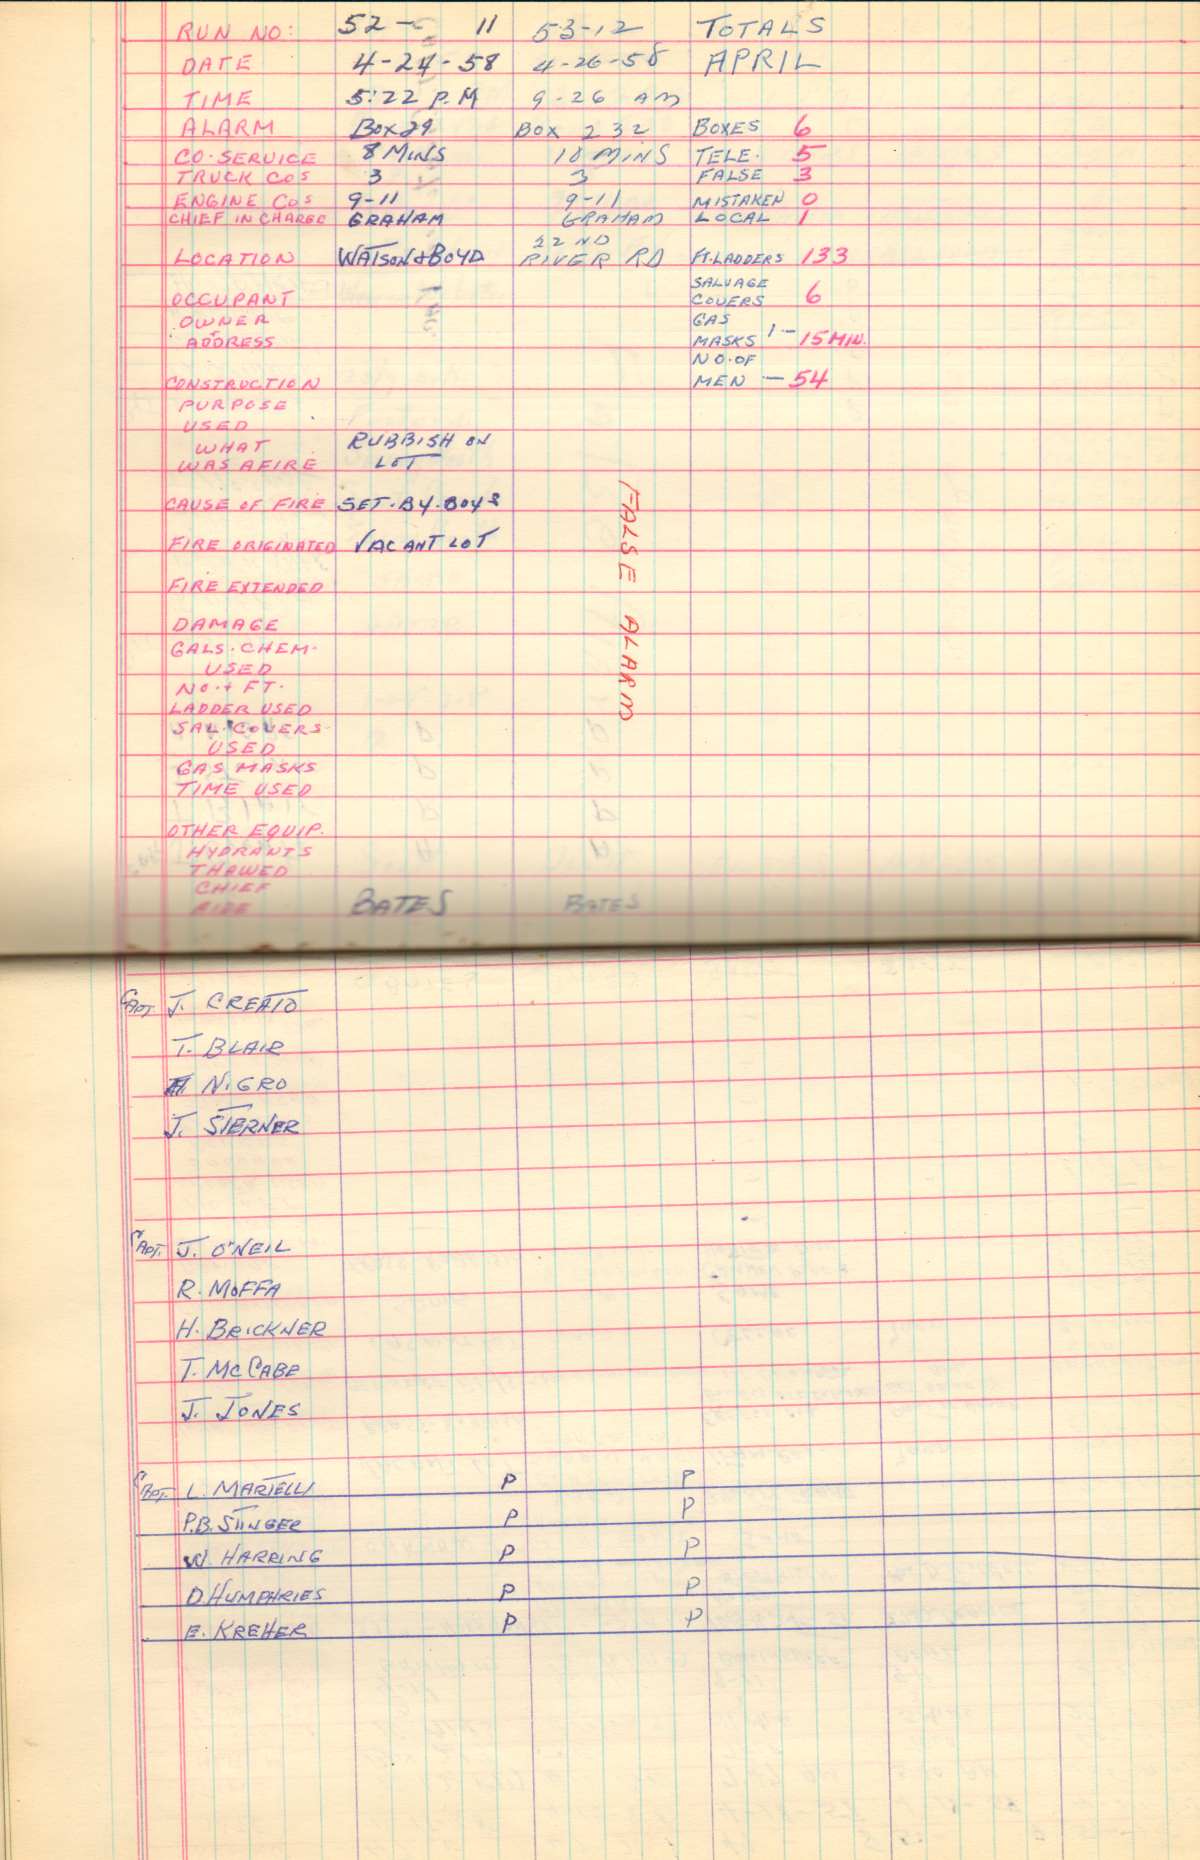 RUN NO: 52- 11 53-12 TOTALS
DATE 4-24-58 4-26-58 APRIL
TIME 5:22 P.M 9-26 AM
ALARM BOX 29 BOX 232 BOXES 6
CO. SERVICE 8 MINS 10 MINS TELE. 5
TRUCK COS 3 3 FALSE 3
ENGINE COS 9-11 9-11 MISTAKEN 0
CHIEF IN CHARGE GRAHAM GRAHAM LOCAL 1
22 ND
LOCATION WATSON & BOYD RIVER RD FT. LADDERS 133
SALVAGE
OCCUPANT COVERS 6
OWNER GAS
ADDRESS MASKS 1 - 15 MIN.
NO. OF
CONSTRUCTION MEN - 54
PURPOSE
USED
WHAT RUBBISH ON
WAS AFIRE LOT
CAUSE OF FIRE SET. BY. BOYS
FIRE ORIGINATED VACANT LOT
FALSE ALARM
FIRE EXTENDED
DAMAGE
GALS. CHEM.
USED
NO. + FT.
LADDER USED
SAL. COVERS
USED
GAS MASKS
TIME USED
OTHER EQUIP.
HYDRANTS
THAWED
CHIEF
AIDE BATES BATES
CAPT. J. CREATO
T. BLAIR
NIGRO
J. STERNER
CAPT. J. O'NEIL
R. MOFFA
H. BRICKNER
T. MCCABE
J. JONES
CAPT. L. MARTELLI P P
P.B. STINGER P P
W. HARRING P P
D. HUMPHRIES P P
E. KREHER P P